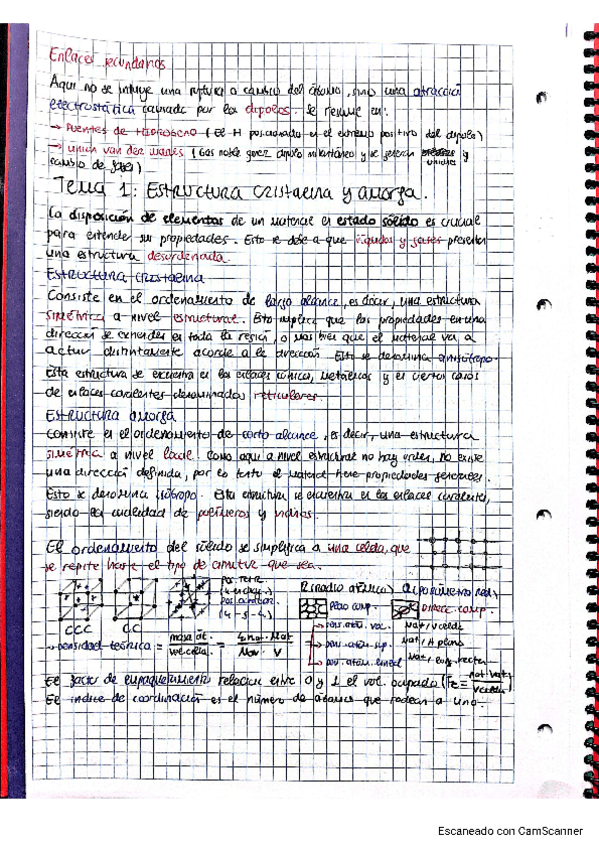 Enlaces secundarios
Aquí no se incluye una ruptura o cambio del átomo, sino una atracción
electrostática causada por los dipolos. Se resume en:
→ Puentes de Hidrógeno (El H posicionado en el extremo positivo del dipolo)
→ unión van der Waals (Gas noble genera dipolo instantáneo y se generan y
cambio de fases)
Tema 1: Estructura cristalina y amorfa.
La disposición de elementos de un material en estado sólido es crucial
para entender sus propiedades. Esto se debe a que líquidos y gases presentan
una estructura desordenada.
Estructura cristalina
Consiste en el ordenamiento de largo alcance, es decir, una estructura
simétrica a nivel estructural. Esto implica que las propiedades en una
dirección se extienden en toda la región, o más bien que el material va a
actuar distintamente acorde a la dirección. Esto se denomina anisótropo.
Esta estructura se encuentra en los enlaces iónicos, metálicos y en ciertos casos
de enlaces covalentes denominados reticulares.
Estructura amorfa
Consiste en el ordenamiento de corto alcance, es decir, una estructura
simétrica a nivel local. Como aquí a nivel estructural no hay orden, no existe
una dirección definida, por lo tanto el material tiene propiedades generales.
Esto se denomina isótropo. Esta estructura se encuentra en los enlaces covalentes,
siendo la cualidad de polímeros y vidrios.
El ordenamiento del sólido se simplifica a una celda, que
se repite hasta el tipo de que sea.
R(radio atómico) a(parámetro red)
plano comp. direcc. comp.
CCC CC
→ densidad teórica = masa át. / vol. celda =
→ den. atóm. vol. Nat/Vcelda
→ den. atóm. sup. Nat/A plano
→ den. atóm. lineal Nat/Long. recta
El factor de empaquetamiento relaciona entre 0 y 1 el vol. ocupado (Fe = nat·Vat / Vcelda)
El índice de coordinación es el número de átomos que rodean a uno.
Escaneado con CamScanner